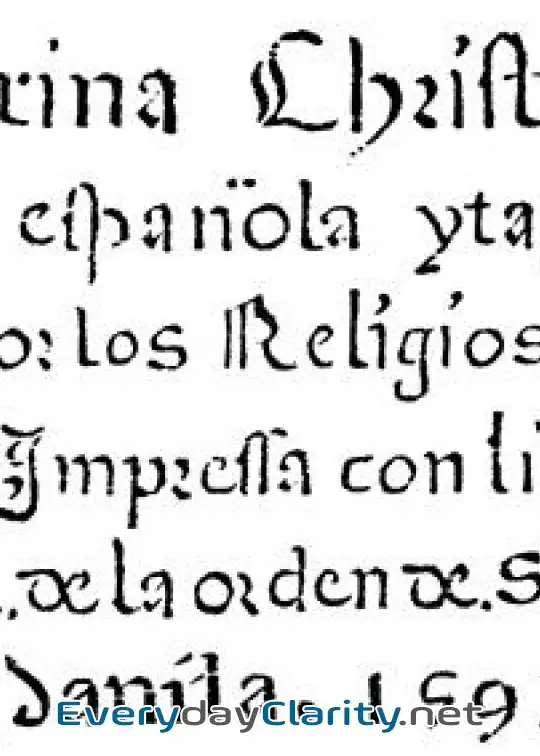 rina Christ
española yta
or los Religios
Impressa con li
. de la orden de .S
Manila. 159
EverydayClarity.net